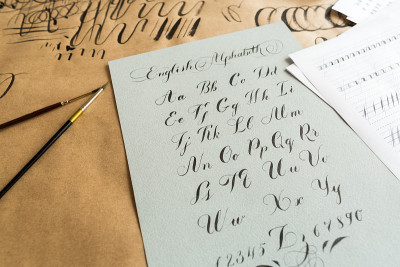 English Alphabeth
Aa Bb Cc Dd
Ee Ff Gg Hh Ii
Jj Kk Ll Mm
Nn Oo Pp Qq Rr
Ss Tt Uu Vv
Ww Xx Yy
1 2 3 4 5 Zz 6 7 8 9 0